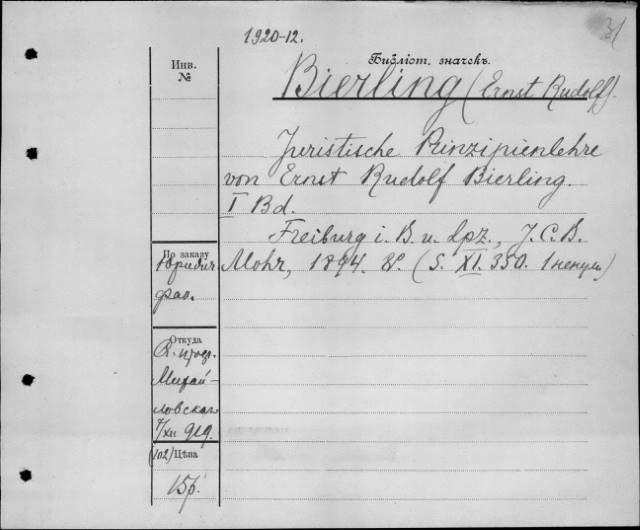 31
1920-12.
Инв.
№
Библіот. значекъ.
Bierling (Ernst Rudolf).
Juristische Prinzipienlehre
von Ernst Rudolf Bierling.
I Bd.
Freiburg i. B. u. Lpz., J. C. B.
Mohr, 1894. 8°. (S. XI. 350. 1 ненум.)
По заказу
Юридич
фак.
Откуда
Михай-
ловскаго
7/XII 919.
(102) Цѣна
15р.